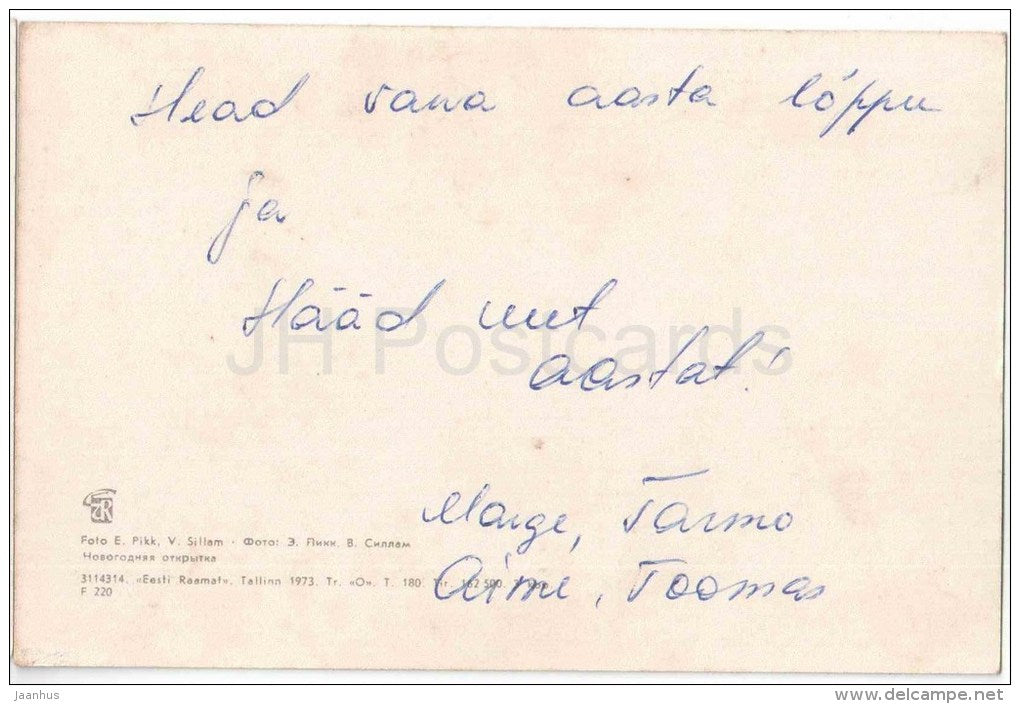 Head vana aasta lõppu
ja
Hääd uut
aastat!
JH Postcards
Marge, Tarmo
Aime, Toomas
Foto E. Pikk, V. Sillam · Фото: Э. Пикк, В. Силлам
Новогодняя открытка
3114314. «Eesti Raamat». Tallinn 1973. Tr. «O». T. 180 Tir. 162 500.
F 220
Jaanhus
www.delcampe.net